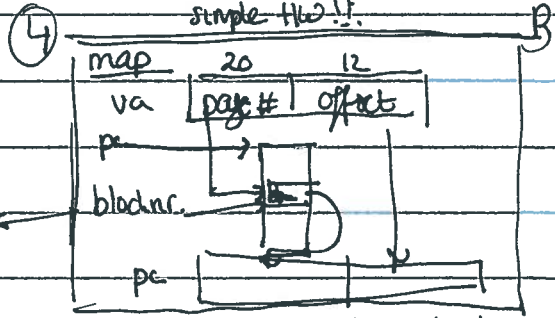 4 simple HW!!
map 20 12
va page # offset
pc
blocknr.
pc